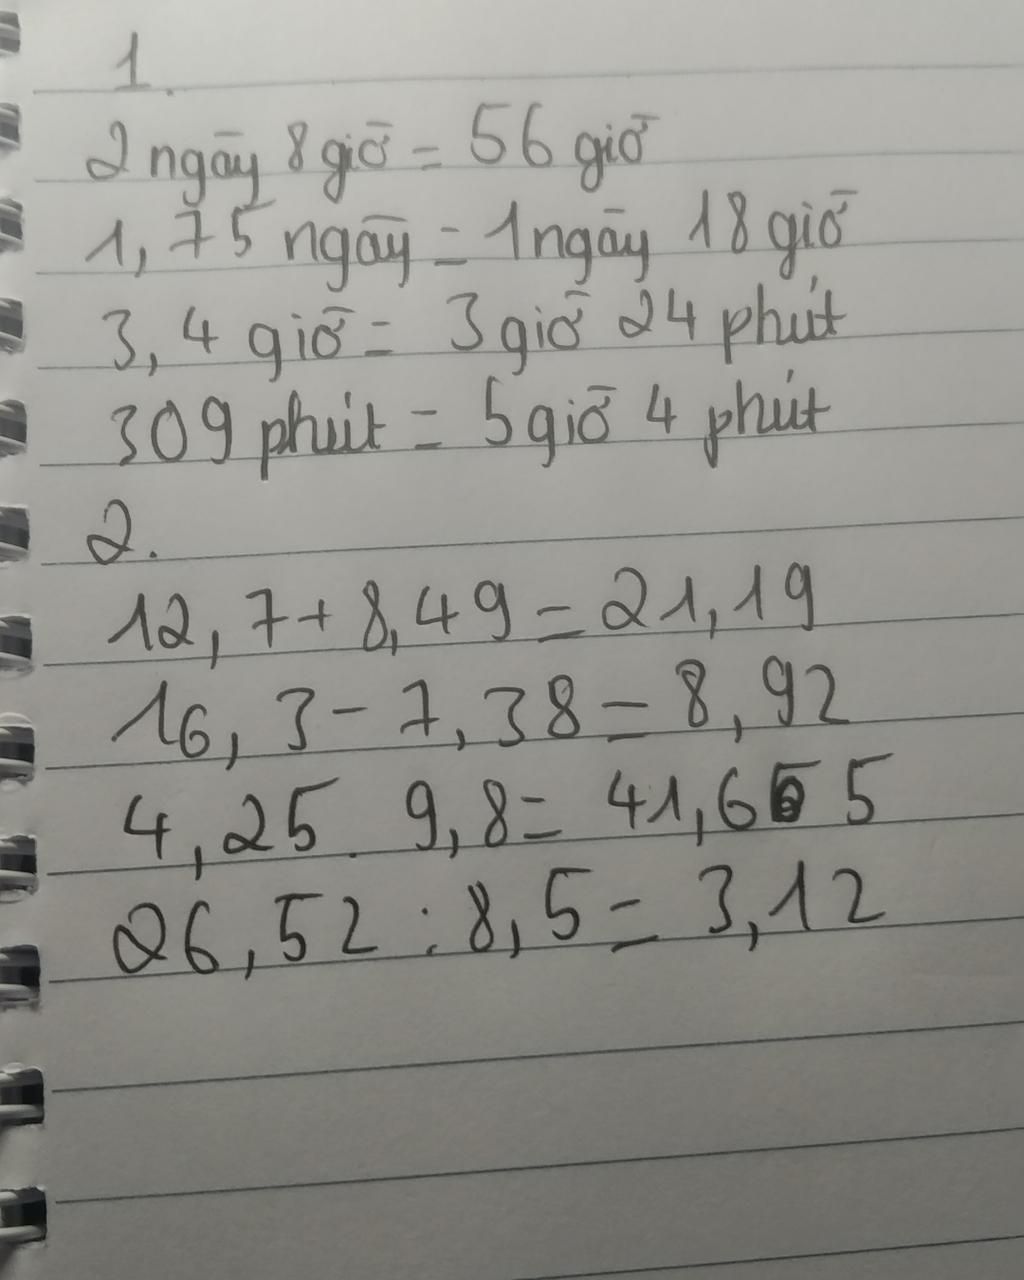 1.
2 ngày 8 giờ = 56 giờ
1,75 ngày = 1 ngày 18 giờ
3,4 giờ = 3 giờ 24 phút
309 phút = 5 giờ 4 phút
2.
12,7 + 8,49 = 21,19
16,3 - 7,38 = 8,92
4,25 . 9,8 = 41,6 5
26,52 : 8,5 = 3,12